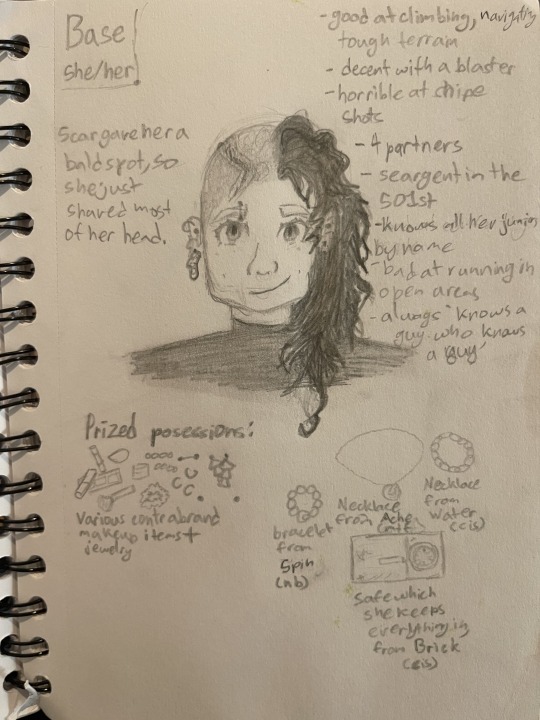 Base
she/her
- good at climbing, navigating
tough terrain
- decent with a blaster
- horrible at
shots
- 4 partners
- seargent in the
501st
- knows all her
by name
- bad at running in
open areas
- always "knows a
guy who knows
a guy"
Scar gave her a
bald spot, so
she just
shaved most
of her head.
Prized posessions:
Various contraband
makeup items +
jewelry
bracelet
from
Spin
(nb)
Necklace
from Ache
(mtf)
Necklace
from
Water
(cis)
Safe which
she keeps
everything in
from Brick
(cis)